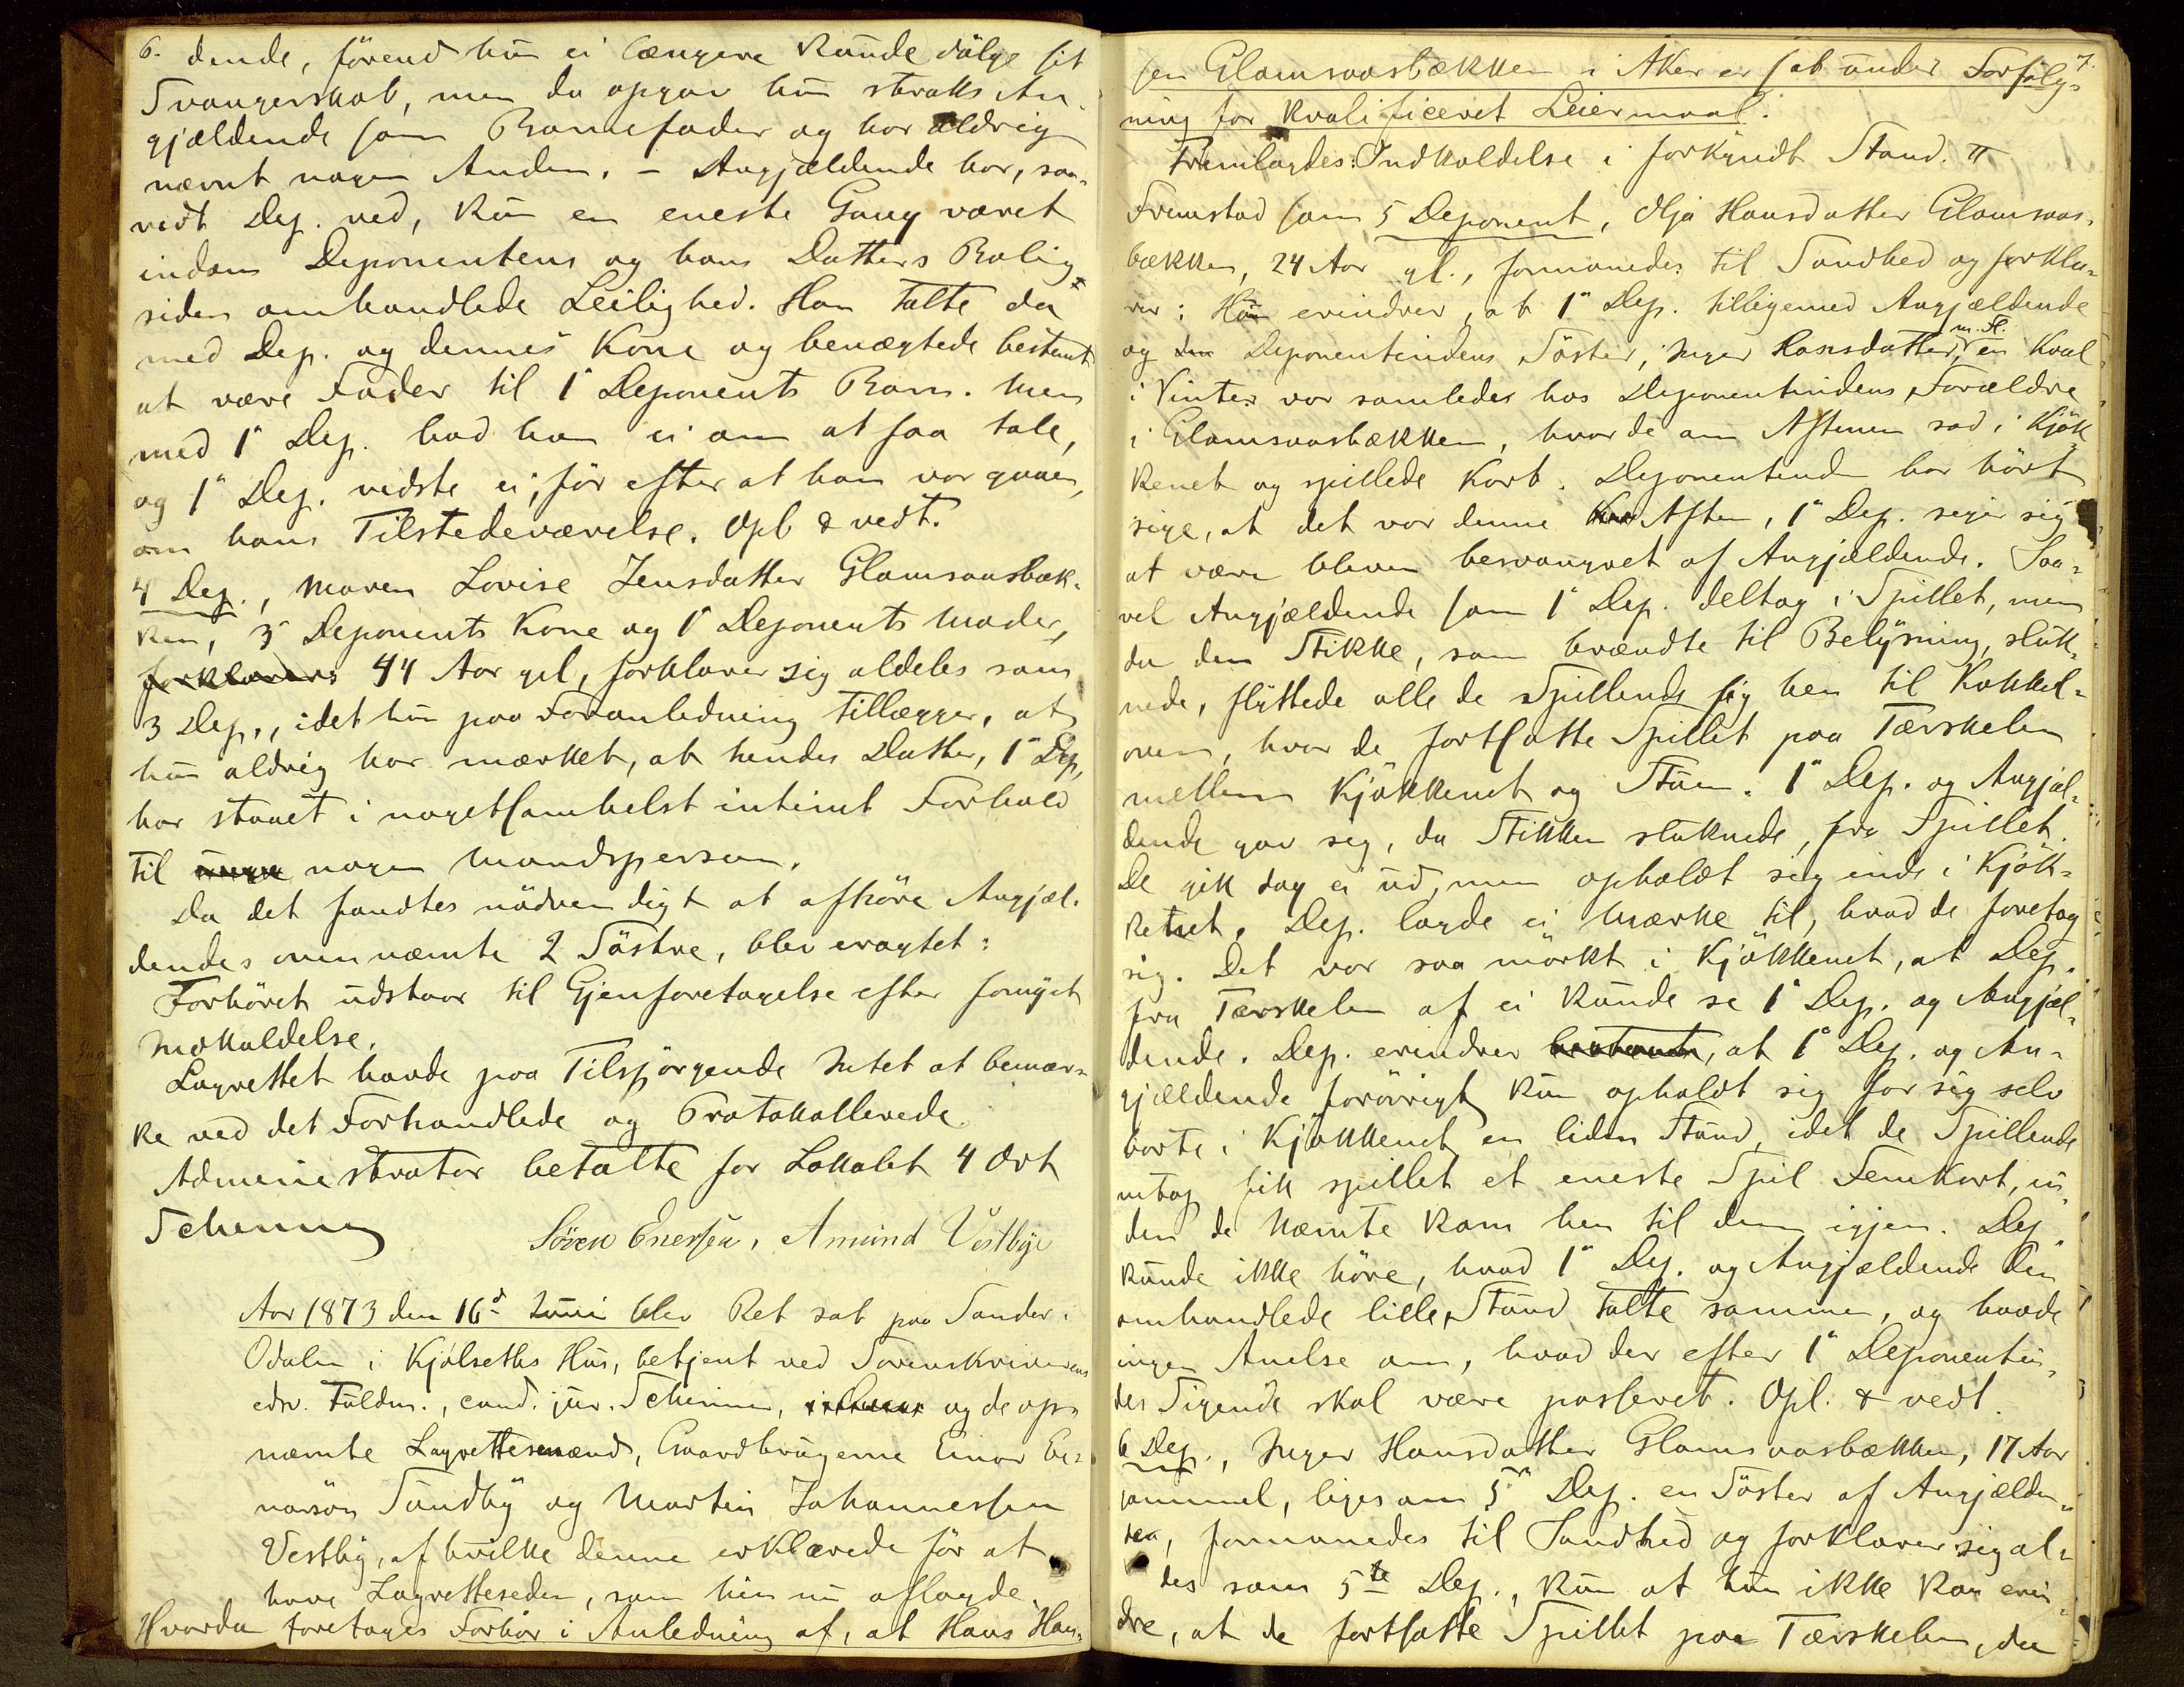 6.
dende, förend hun ei længere kunde dölge sit
Svangerskab, men da opgav hun straks An-
gjældende som Barnefader og har aldrig
nævnt nogen Anden. - Angjældende har, saa-
vidt Dep. ved, kun en eneste Gang været
indom Deponentens og hans Datters Bolig
siden omhandlede Leilighed. Han talte da
med Dep. og dennes Kone og benægtede bestemt
at være Fader til 1ste Deponents Barn. Men
med 1ste Dep. bad han ei om at faa tale,
og 1ste Dep. vidste ei, för efter at han var gaaen,
om hans Tilstedeværelse. Opl. & vedt.
4 Dep., Maren Lovise Jensdatter Glamsaasbæk-
ken, 3die Deponents Kone og 1ste Deponents Moder,
forklarer: 44 Aar gl., forklarer sig aldeles som
3 Dep., idet hun paa Foranledning tillægger, at
hun aldrig har mærket, at hendes Datter, 1ste Dep,
har staaet i nogetsomhelst intimt Forhold
til nogen Mandsperson.
Da det fandtes nödvendigt at afhöre Angjæl-
dendes ovennævnte 2 Söstre, blev eragtet:
Forhöret udstaar til Gjenforetagelse efter fornyet
Indkaldelse.
Lagrettet havde paa Tilspörgende Intet at bemær-
ke ved det Forhandlede og Protokollerede.
Administrator betalte for Lokalet 4 Ort
Scheimer
Sören Enersen, Amund Vestbye
Aar 1873 den 16de Juni blev Ret sat paa Sander i
Odalen i Kjölseths Hus, betjent ved Sorenskriverens
edsv. Fuldm., cand. jur. Scheimer, og de op-
nævnte Lagrettesmænd, Gaardbrugerne Einar Ei-
narsön Sundby og Martin Johannessen
Vestby, af hvilke denne erklærede för at
have Lagretteseden, som hin nu aflagde.
Hvorda foretoges Forhör i Anledning af, at Hans Han-
7.
sen Glamsaasbækken i Aker er sat under Forfölg-
ning for kvalificeret Leiermaal.
Fremlagdes: Indkaldelse i forkyndt Stand. π
Fremstod som 5 Deponent, Olja Hansdatter Glamsaas-
bækken, 24 Aar gl., formanedes til Sandhed og forkla-
rer: Hun erindrer, at 1ste Dep. tilligemed Angjældende
og Deponentindens Söster, Inger Hansdatter, m. Fl. en Kvæl
i Vinter var samledes hos Deponentindens Forældre
i Glamsaasbækken, hvor de om Aftenen sad i Kjök-
kenet og spillede Kort. Deponentinden har hört
sige, at det var denne Aften, 1ste Dep. siger sig
at være bleven besvangret af Angjældende. Saa-
vel Angjældende som 1ste Dep. deltog i Spillet, men
da den Stikke, som brændte til Belysning, sluk-
nede, flyttede alle de Spillende sig hen til Kakkel-
ovnen, hvor de fortsatte Spillet paa Tærskelen
mellem Kjökkenet og Stuen. 1ste Dep. og Angjæl-
dende gav sig, da Stikken sluknede, fra Spillet.
De gik dog ei ud, men opholdt sig inde i Kjök-
kenet. Dep. lagde ei Mærke til, hvad de foretog
sig. Det var saa mörkt i Kjökkenet, at Dep.
fra Tærskelen af ei kunde se 1ste Dep. og Angjæl-
dende. Dep. erindrer, at 1ste Dep. og An-
gjældende forövrigt kun opholdt sig for sig selv
borte i Kjökkenet en liden Stund, idet de Spillende
netop fik spillet et eneste Spil Femkort, in-
den de Nævnte kom hen til dem igjen. Dep.
kunde ikke höre, hvad 1ste Dep. og Angjældende den
omhandlede lille Stund talte sammen, og havde
ingen Anelse om, hvad der efter 1ste Deponentin-
des Sigende skal være passeret. Opl. & vedt.
6 Dep., Inger Hansdatter Glamsaasbækken, 17 Aar
gammel, ligesom 5te Dep. en Söster af Angjælden-
de, formanedes til Sandhed og forklarer sig al-
des som 5te Dep., kun at hun ikke kan erin-
dre, at de fortsatte Spillet paa Tærskelen, da